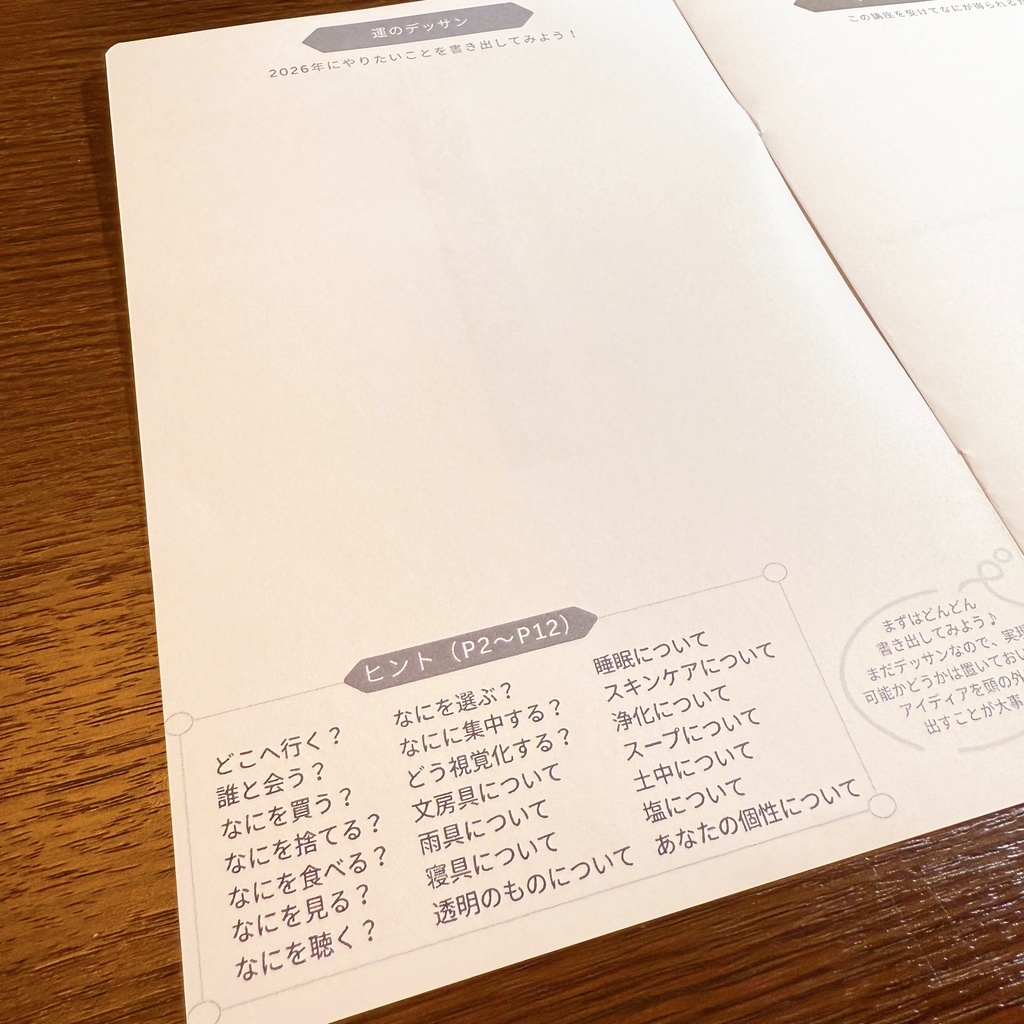 運のデッサン
2026年にやりたいことを書き出してみよう！
この講座を受けてなにが得られるか
ヒント（P2〜P12）
どこへ行く？
誰と会う？
なにを買う？
なにを捨てる？
なにを食べる？
なにを見る？
なにを聴く？
なにを選ぶ？
なにに集中する？
どう視覚化する？
文房具について
雨具について
寝具について
透明のものについて
睡眠について
スキンケアについて
浄化について
スープについて
土中について
塩について
あなたの個性について
まずはどんどん
書き出してみよう♪
まだデッサンなので、実現
可能かどうかは置いておい
アイディアを頭の外
出すことが大事